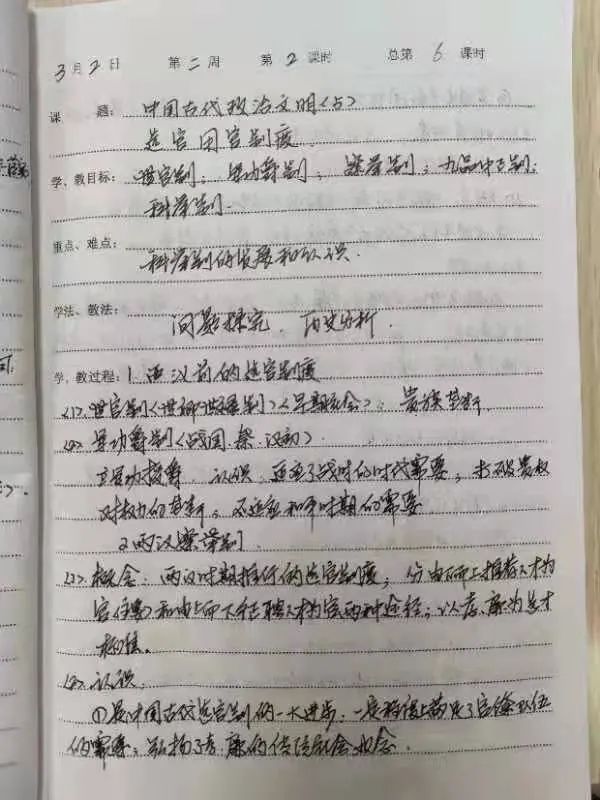 3月2日 第二周 第2课时 总第6课时
课 题: 中国古代政治文明(5)
选官用官制度
学、教目标: 世官制;军功爵制;察举制;九品中正制;
科举制.
重点、难点:
科举制的发展和认识.
学法、教法:
问题探究、历史分析.
学、教过程: 1.西汉前的选官制度
(1).世官制<世卿世禄制>(早期社会):贵族垄断.
(2).军功爵制(战国.秦.汉初).
立军功授爵.认识.适应了战时的时代需要;打破贵族
对权力的垄断;不适应和平时期的需要
2.两汉察举制.
(1).概念:两汉时期推行的选官制度;分由下而上推荐人才为
官(主要)和由上而下征聘人才为官两种途径;以孝、廉为选才
标准。
(2).认识:
①是中国古代选官制的一大进步;一定程度上满足了官僚队伍
的需要;弘扬了孝.廉的传统社会观念.